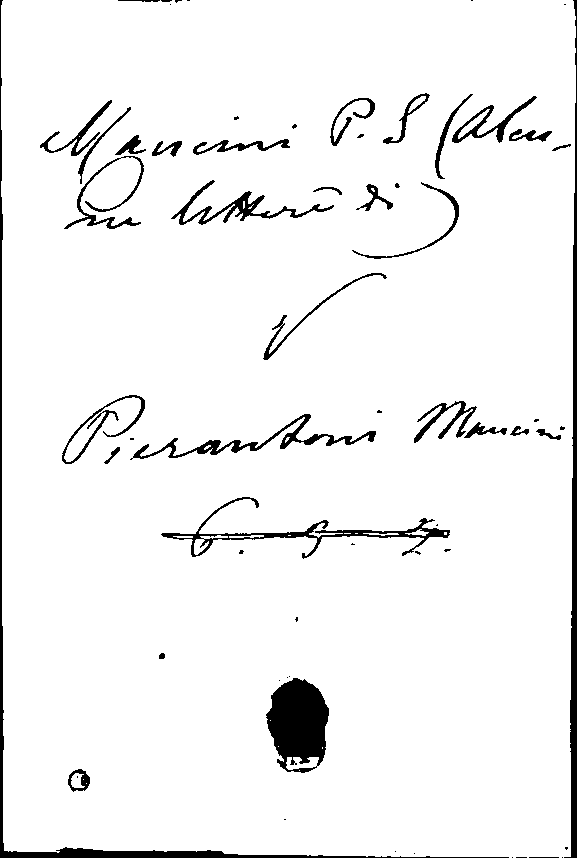 Mancini P. S (Alcu-
ne lettere di)
V
Pierantoni Mancini
6. 9. Z.